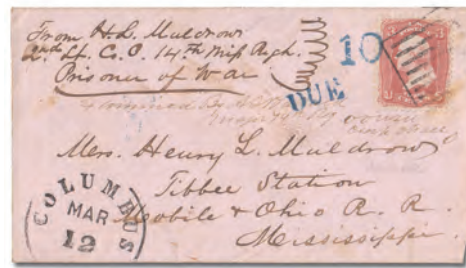 From H. L. Muldrow
2nd Lt. Co. C. 14th Miss Regt.
Prisoner of War
10
DUE
3 3
Examined By
Mrs. Henry L. Muldrow
Tibbee Station
Mobile & Ohio R. R.
Mississippi.
COLUMBUS
MAR
12